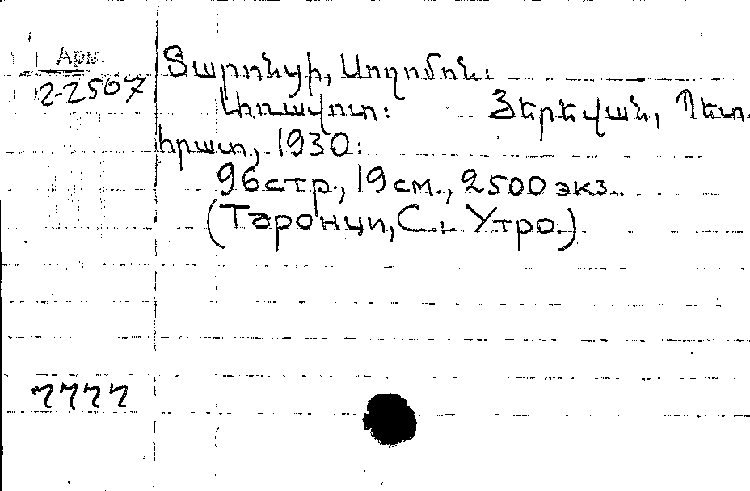 Арм.
2-2507
Տարոնցի, Սողոմոն:
Լիռավուտ: Յերեվան, Պետ.
հրատ, 1930:
96 стр., 19 см., 2500 экз.
(Таронци, С. Утро.)
7777